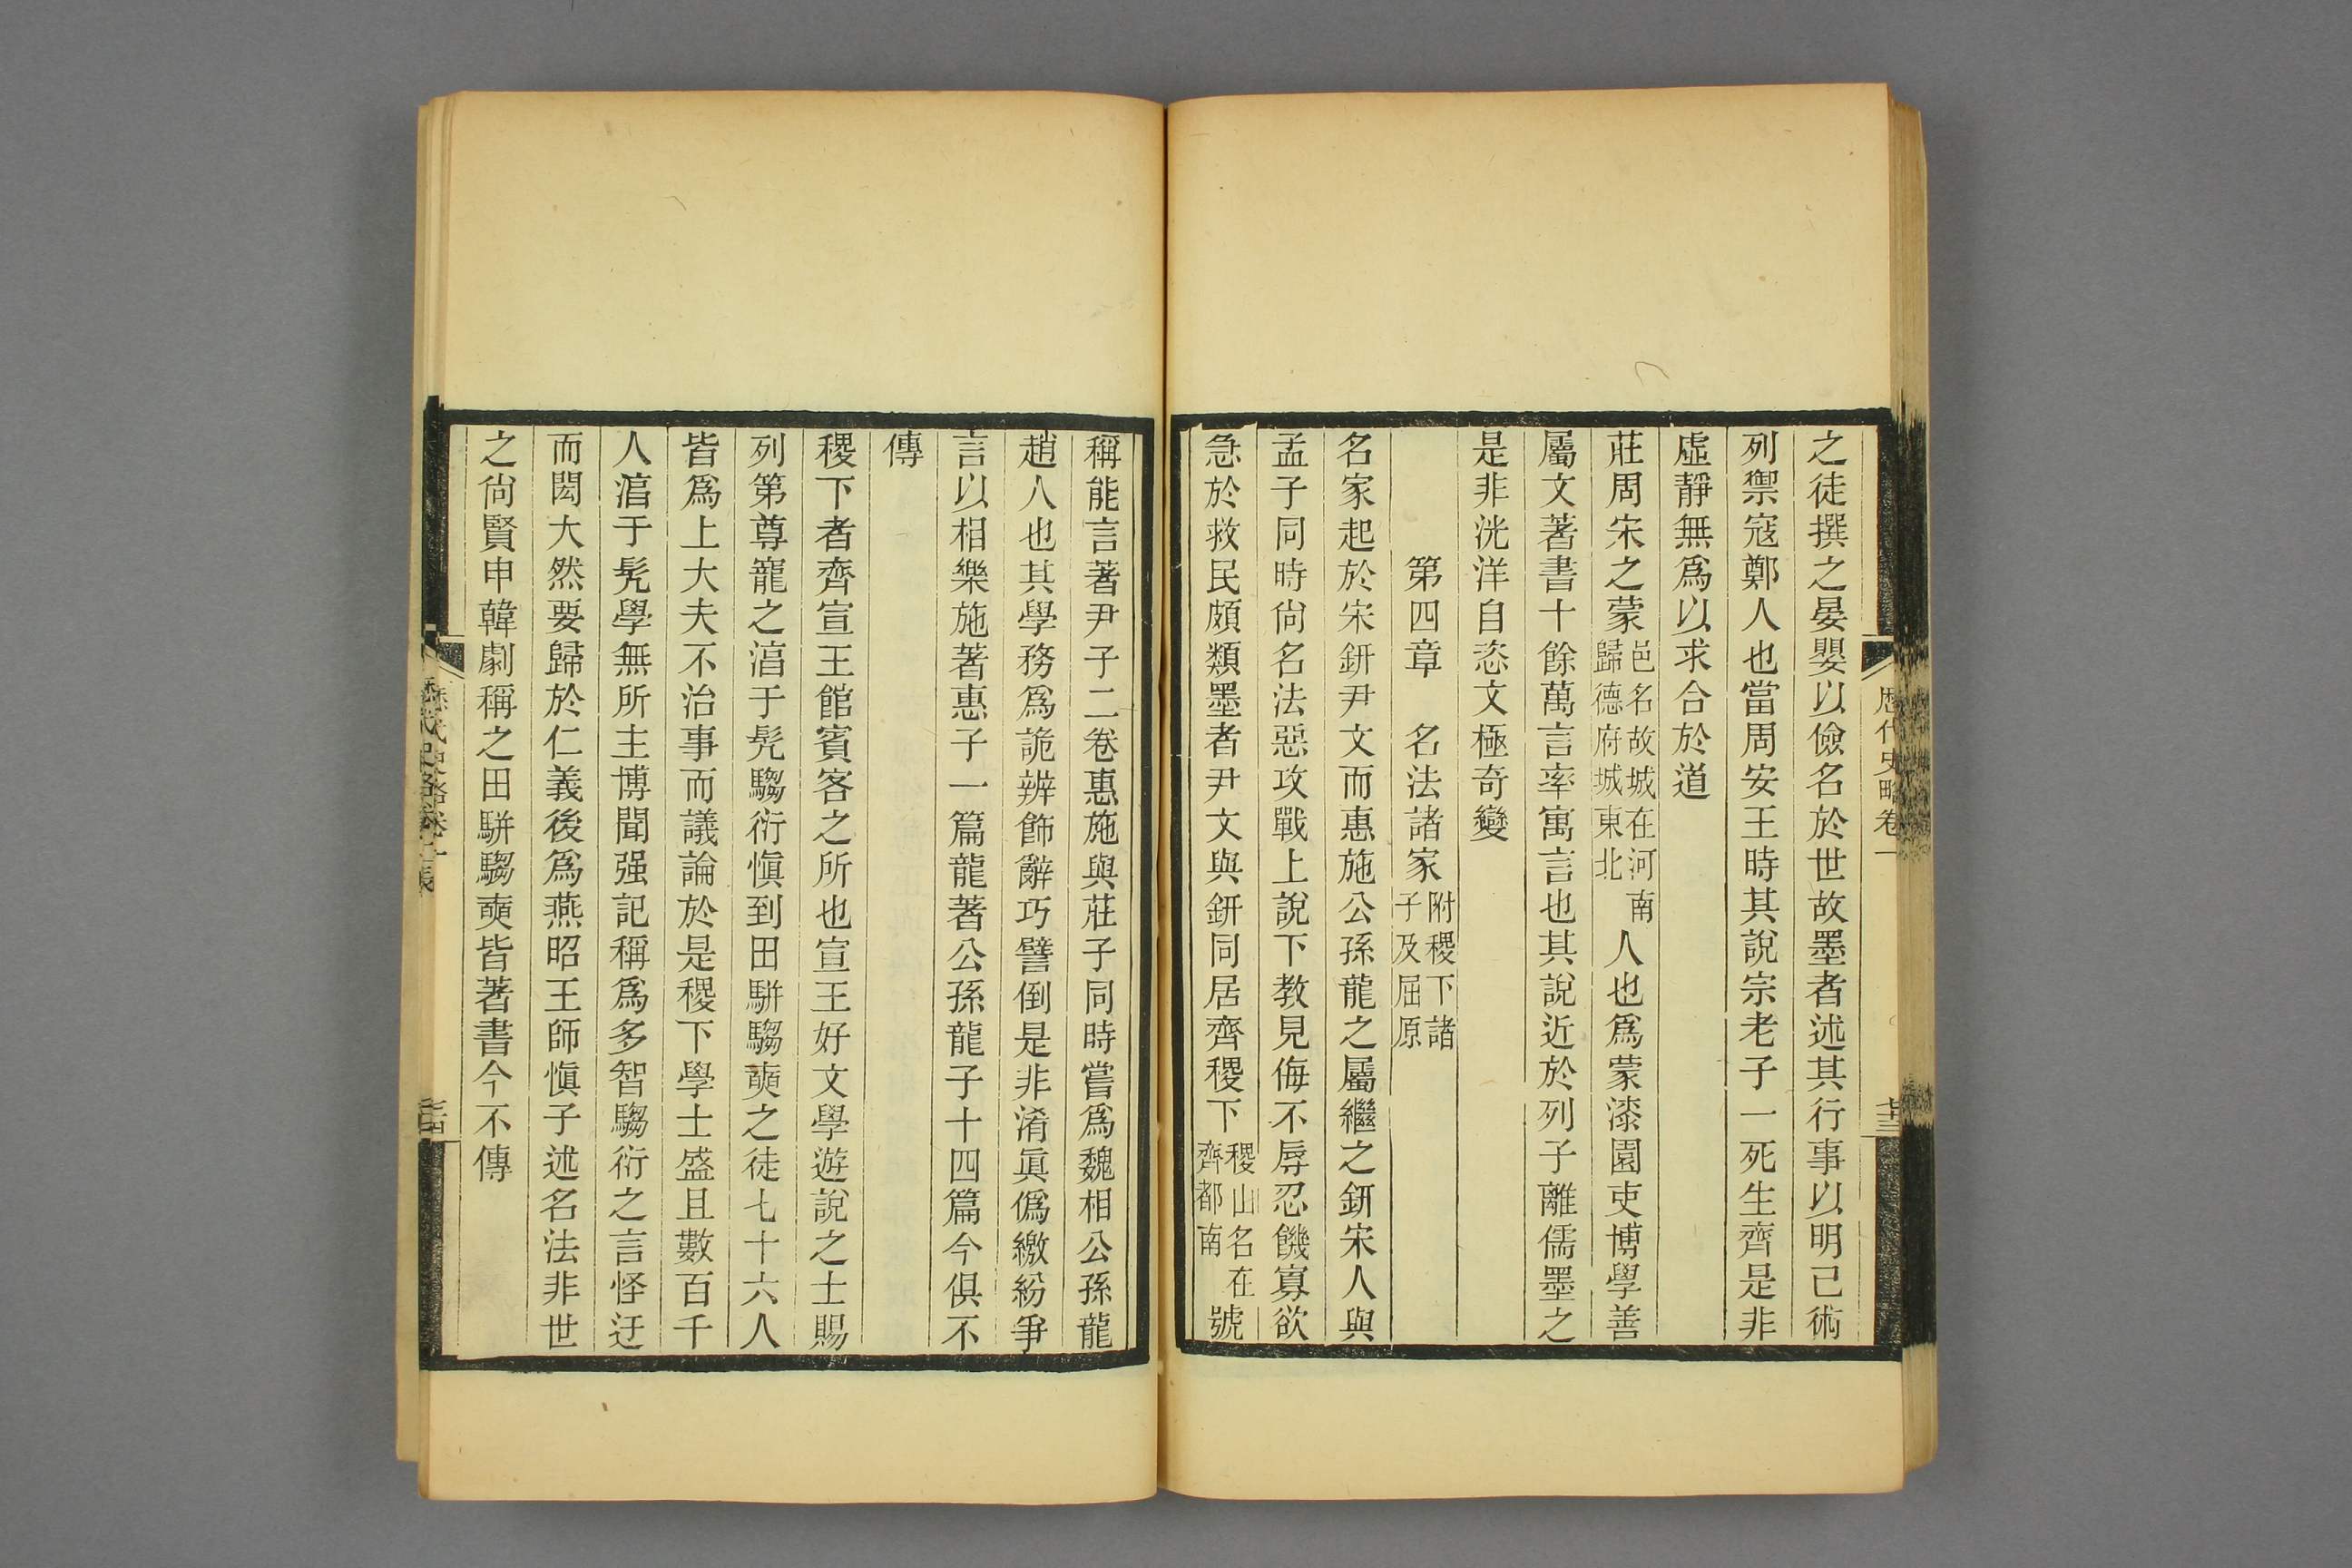 歷代史略卷一
之徒撰之晏嬰以儉名於世故墨者述其行事以明己術
列禦寇鄭人也當周安王時其說宗老子一死生齊是非
虛靜無爲以求合於道
莊周宋之蒙邑名故城在河南歸德府城東北人也爲蒙漆園吏博學善
屬文著書十餘萬言率寓言也其說近於列子離儒墨之
是非洸洋自恣文極奇變
第四章 名法諸家附稷下諸子及屈原
名家起於宋鈃尹文而惠施公孫龍之屬繼之鈃宋人與
孟子同時尙名法惡攻戰上說下教見侮不辱忍饑寡欲
急於救民頗類墨者尹文與鈃同居齊稷下稷山名在齊都南號
稱能言著尹子二卷惠施與莊子同時嘗爲魏相公孫龍
趙人也其學務爲詭辨飾辭巧譬倒是非淆眞僞繳紛爭
言以相樂施著惠子一篇龍著公孫龍子十四篇今俱不
傳
稷下者齊宣王館賓客之所也宣王好文學遊說之士賜
列第尊寵之湻于髠騶衍愼到田駢騶奭之徒七十六人
皆爲上大夫不治事而議論於是稷下學士盛且數百千
人湻于髠學無所主博聞强記稱爲多智騶衍之言怪迂
而閎大然要歸於仁義後爲燕昭王師愼子述名法非世
之尙賢申韓劇稱之田駢騶奭皆著書今不傳